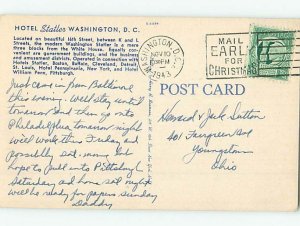 HOTEL Statler WASHINGTON, D. C.
Located on beautiful 16th Street, between K and L
Streets, the modern Washington Statler is a mere
three blocks from the White House. Equally convenient
are the government, and the business
and amusement districts. Operated in connection with
Hotels Statler, Boston, Buffalo, Cleveland, Detroit,
St. Louis, Hotel Pennsylvania, New York, and Hotel
William Penn, Pittsburgh.
WASHINGTON, D.C.
NOV 10
PM
1943
MAIL
EARLY
FOR
CHRISTMAS
POST CARD
Just came in from Baltimore
this evening. Will stay until
tomorrow and then go into
Philadelphia tomorrow night
will work there Friday and
possibly Sat. morning
hope to pull into Pittsburgh
Saturday and home Sat. night
Will be ready for papers Sunday
Daddy
Howard & Jack Sutton
401 Fairgreen Ave
Youngstown
Ohio